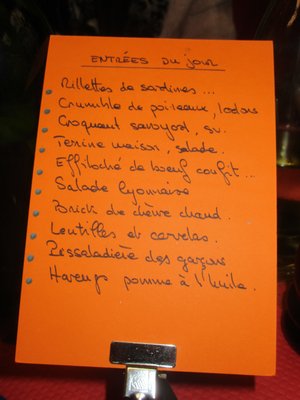 ENTRÉES DU JOUR
Rillettes de sardines ...
Crumble de poireaux, lardons
Croquant savoyard, sv.
Terrine maison, salade.
Effiloché de boeuf confit ...
Salade lyonnaise
Brick de chèvre chaud.
Lentilles et cervelas.
Pissaladière des garçons
Harengs pomme à l'huile.